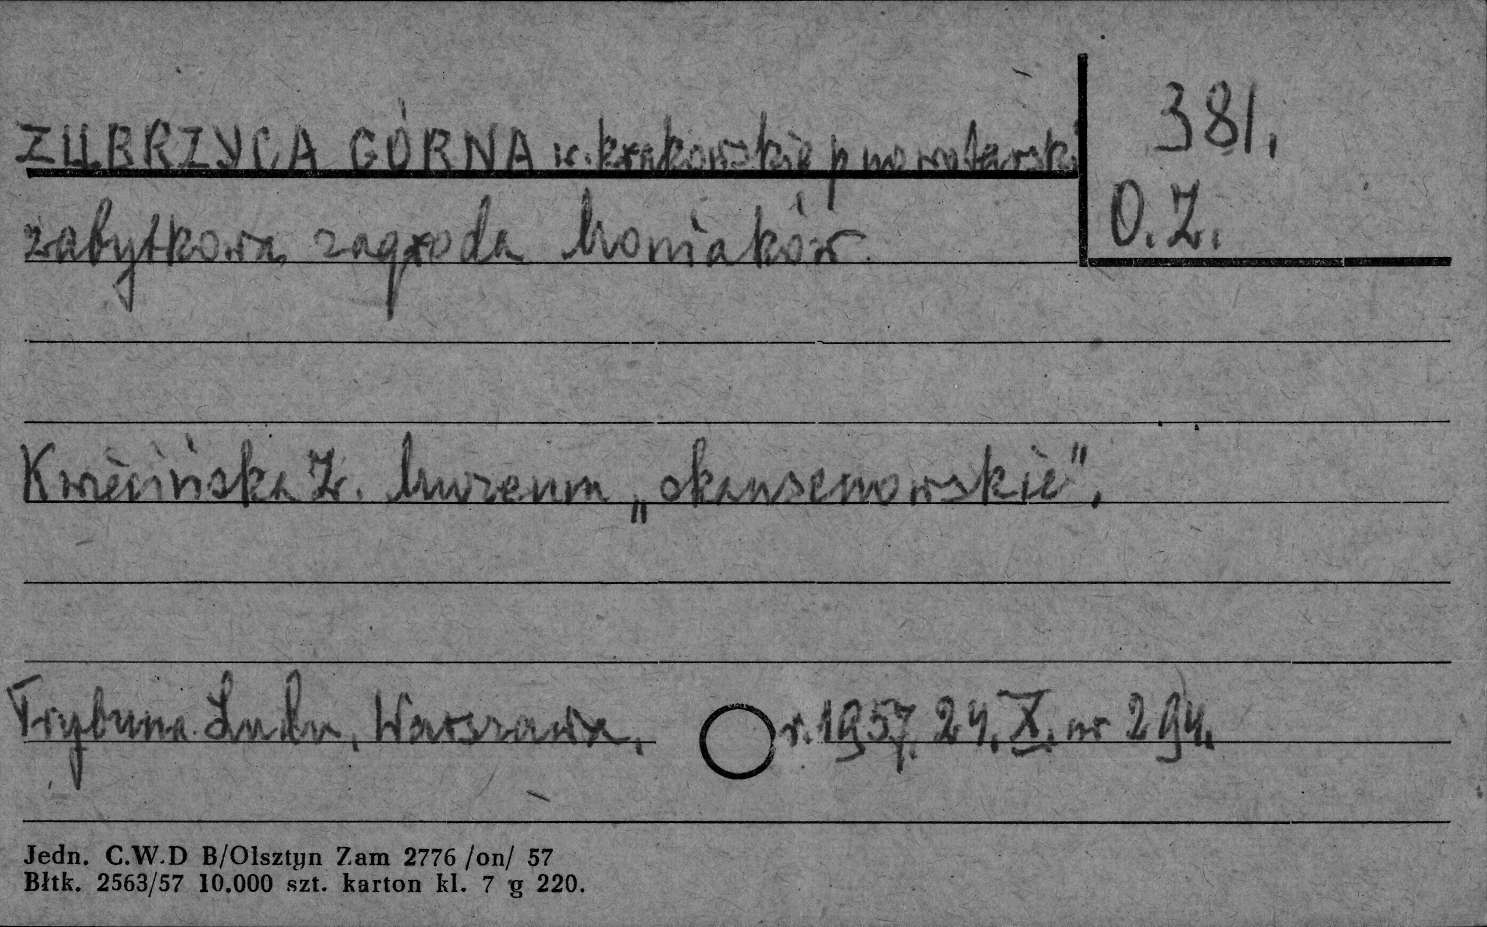 ZUBRZYCA GÓRNA w. krakowskie p nowotarski
381.
O.Z.
zabytkowa zagroda Moniaków.
Kwiecińska Z. Muzeum „skansenowskie".
Trybuna Ludu, Warszawa, r. 1957. 24. X. nr 294.
Jedn. C.W.D B/Olsztyn Zam 2776 /on/ 57
Błtk. 2563/57 10.000 szt. karton kl. 7 g 220.